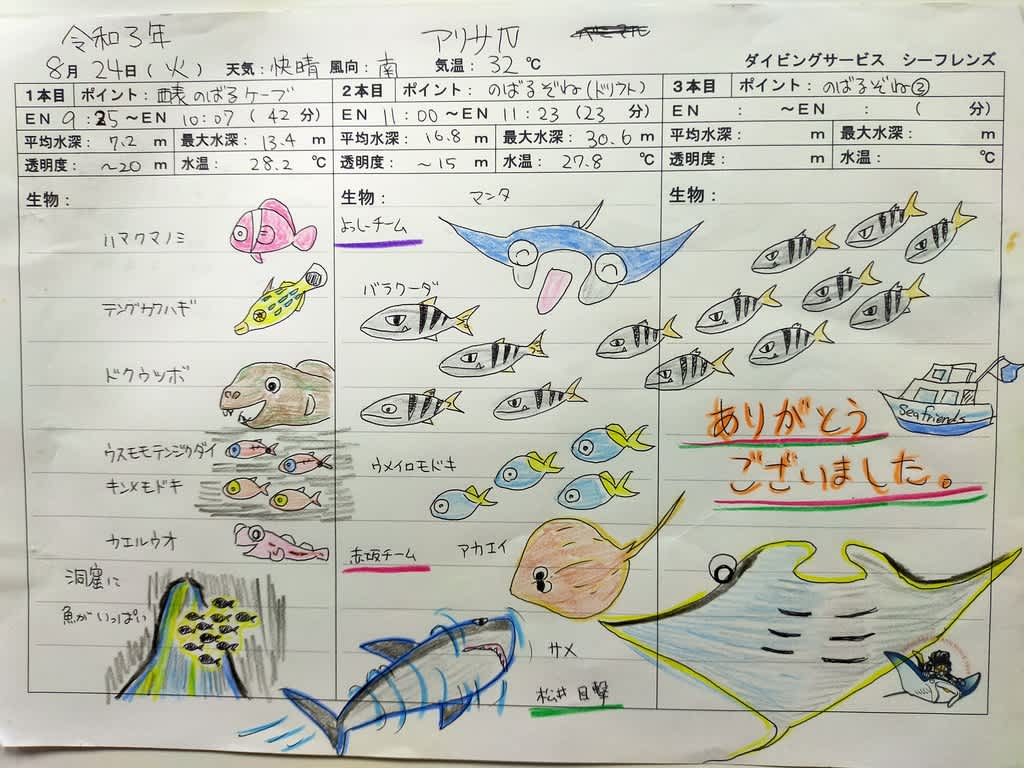 令和3年 アリサ力
8月 24日(火) 天気:快晴 風向:南 気温:32℃ ダイビングサービス シーフレンズ
1本目 ポイント:西表のばるケーブ
EN 9:25 ~EN 10:07 (42分)
平均水深:7.2 m 最大水深:13.4 m
透明度:~20 m 水温:28.2 ℃
生物:
ハマクマノミ
テングカワハギ
ドクウツボ
ウスモモテンジクダイ
キンメモドキ
カエルウオ
洞窟に
魚がいっぱい
2本目 ポイント:のばるぞね(ドリフト)
EN 11:00 ~EN 11:23 (23分)
平均水深:16.8 m 最大水深:30.6 m
透明度:~15 m 水温:27.8 ℃
生物:
マンタ
よっしーチーム
バラクーダ
ウメイロモドキ
赤坂チーム アカエイ
サメ
松井 目撃
3本目 ポイント:のばるぞね②
EN : ~EN : ( 分)
平均水深: m 最大水深: m
透明度: m 水温: ℃
生物:
Seafriends
ありがとう
ございました。